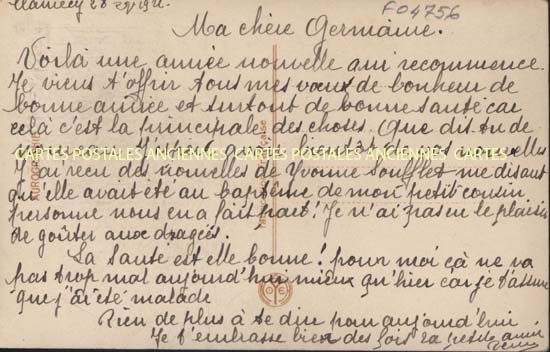 Clamecy 28 1921.
F04756
Ma chère Germaine.
Voilà une année nouvelle qui recommence.
Je viens t'offrir tous mes vœux de bonheur de
bonne année et surtout de bonne santé car
celà c'est la principale des choses. Que dis tu de
CARTES POSTALES ANCIENNES CARTES POSTALES ANCIENNES CARTES
J'ai reçu des nouvelles de Yvonne Soufflet me disant
qu'elle avait été au baptême de mon petit cousin
personne nous en a fait part! Je n'ai pas eu le plaisir
de goûter aux dragées.
La Santé est elle bonne! pour moi çà ne va
pas trop mal aujourd'hui mieux qu'hier car je t'assure
que j'ai été malade
Rien de plus à te dire pour aujourd'hui
Je t'embrasse bien des fois ta petite amie